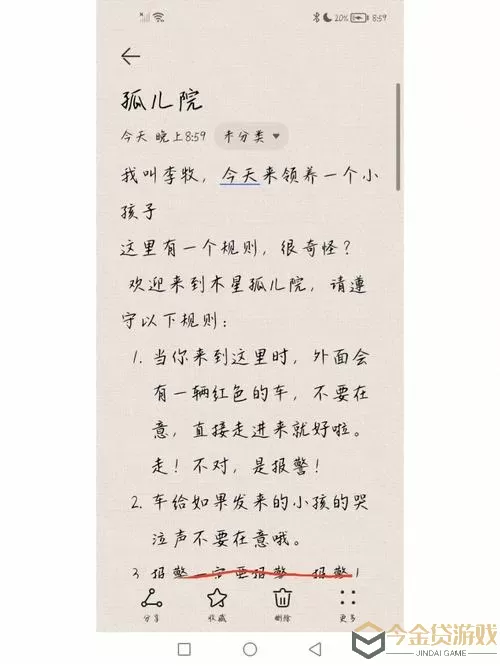 20% 8:59
孤儿院
今天 晚上8:59 未分类
我叫李牧，今天来领养一个小
孩子
这里有一个规则，很奇怪？
欢迎来到木星孤儿院，请遵
守以下规则：
1. 当你来到这里时，外面会
有一辆红色的车，不要在
意，直接走进来就好啦。
走！不对，是报警！
2. 车给如果发来的小孩的哭
泣声不要在意哦。
3 报警一定要报警 报警！
分享 收藏 删除 更多
今金贷游戏
JINDAI GAME